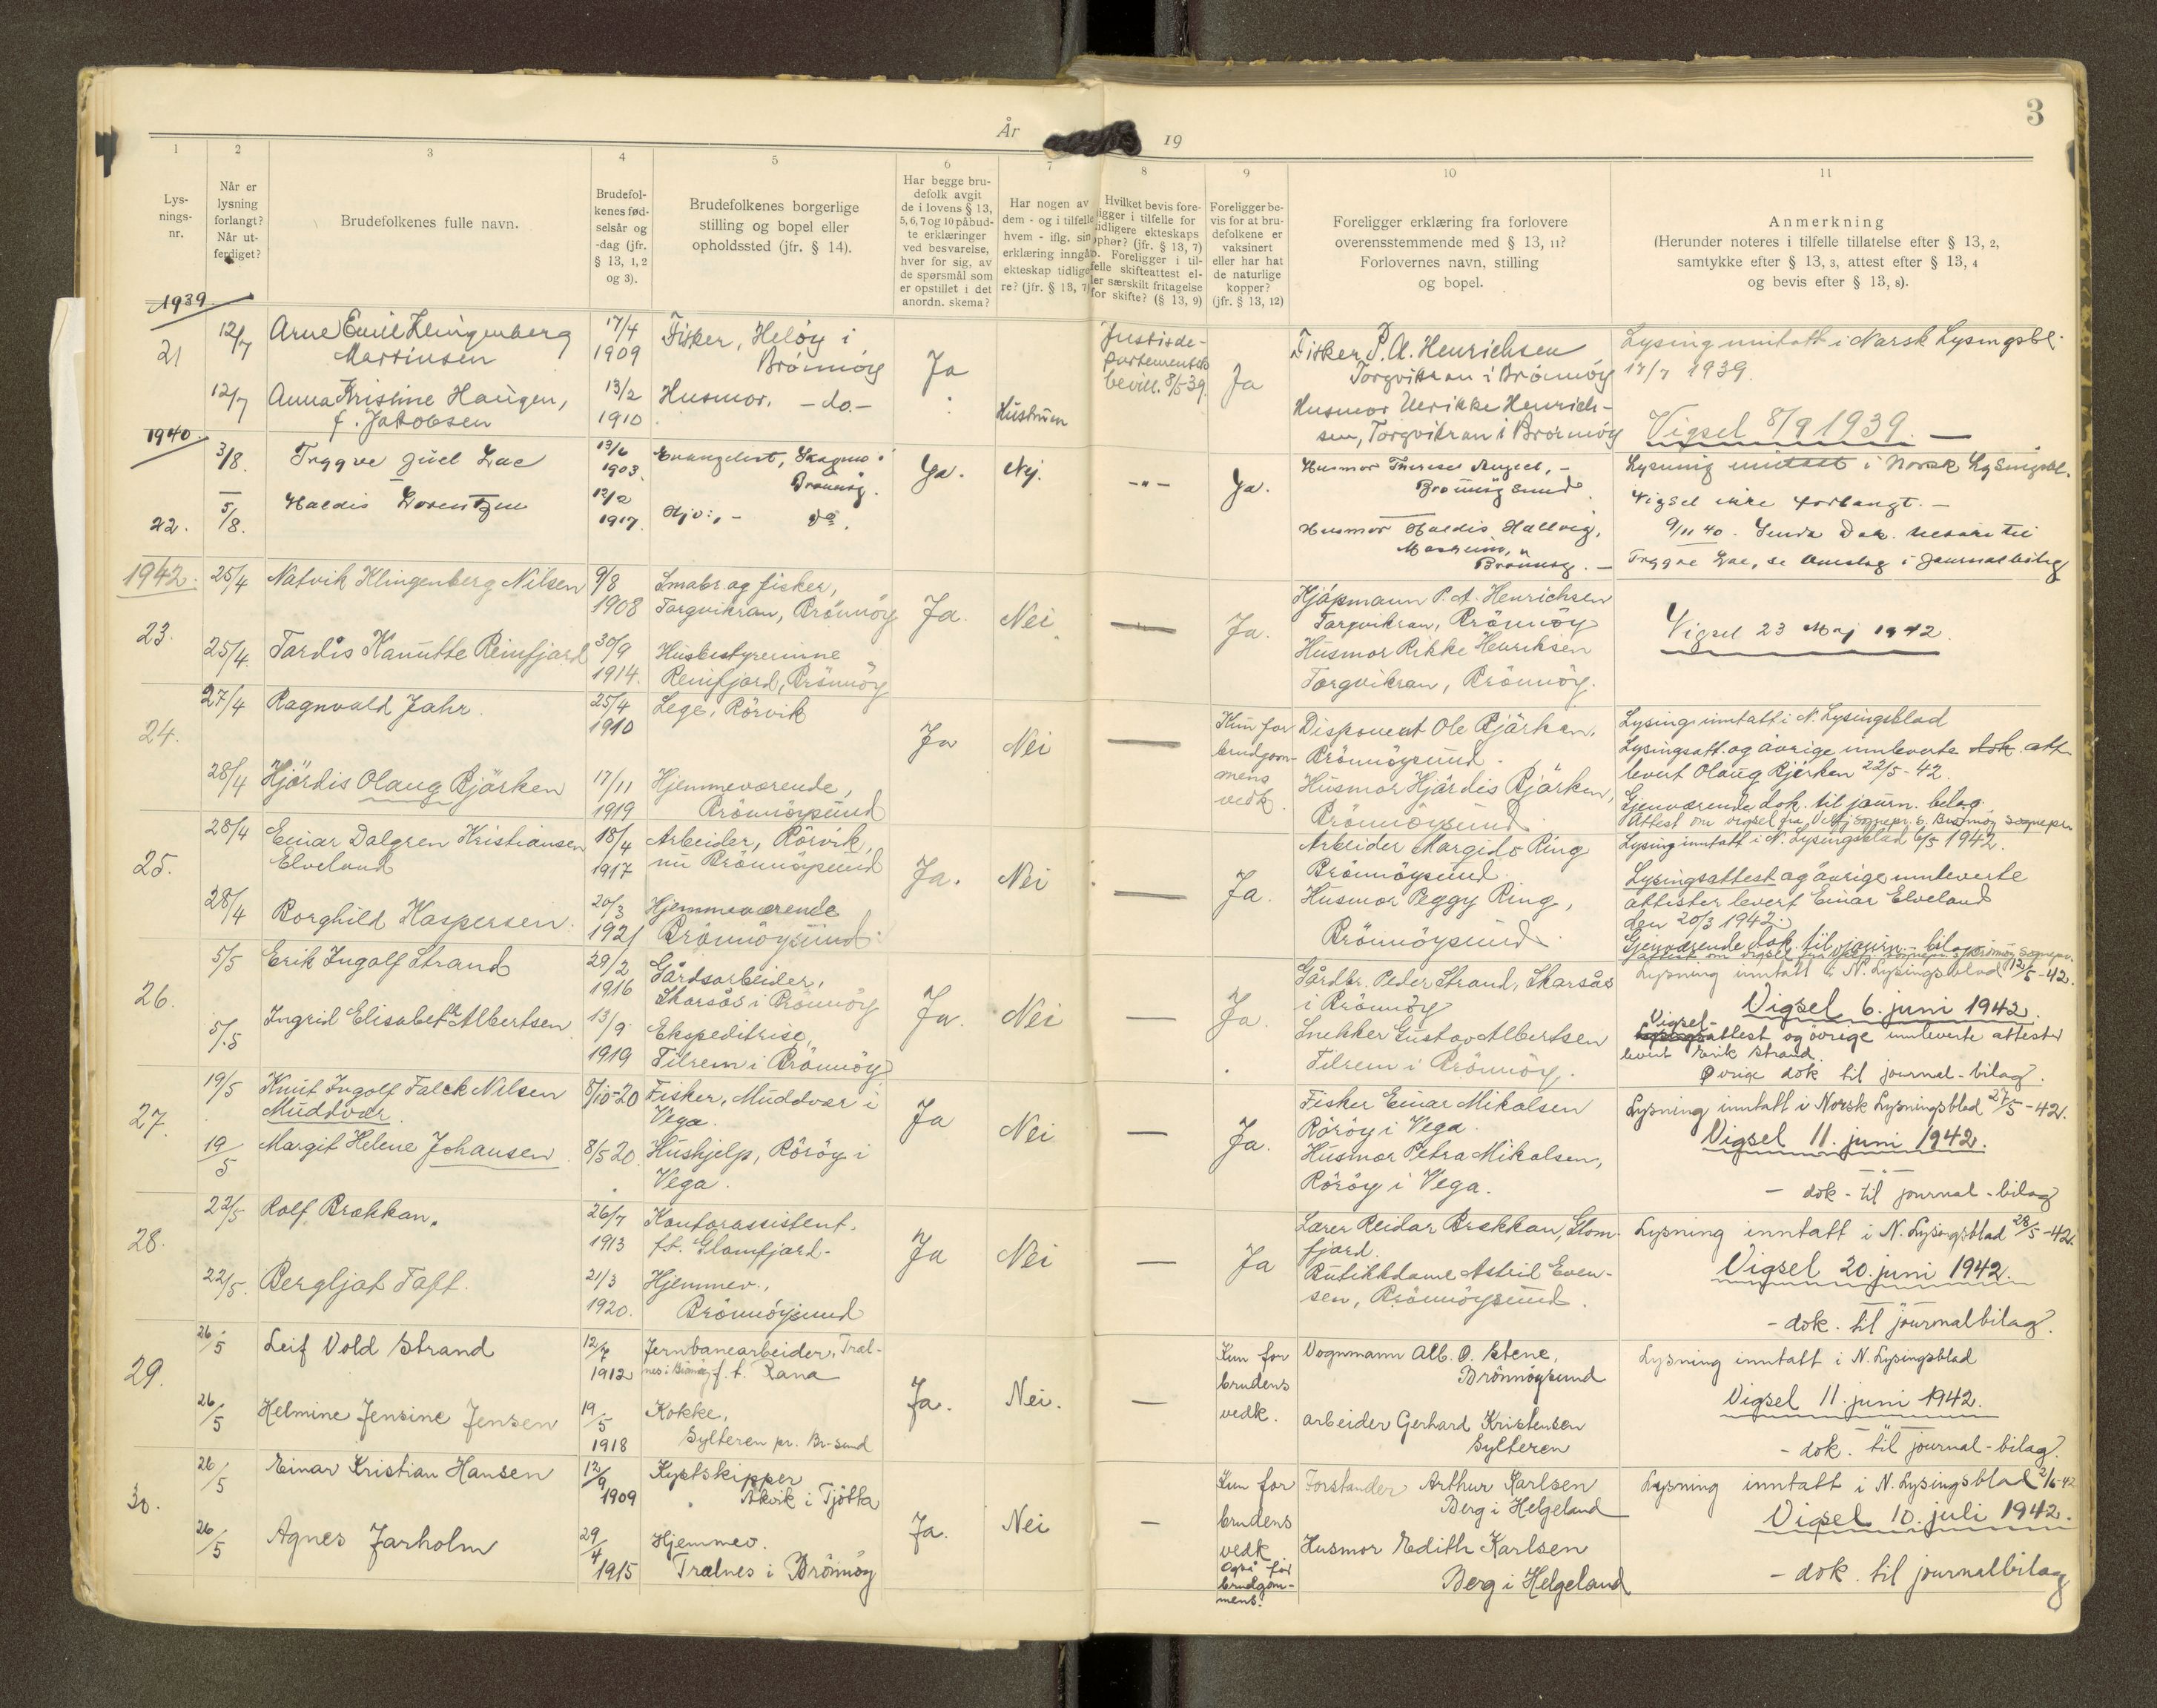 3
År
19
1
2
3
4
5
6
7
8
9
10
11
Lys-
nings-
nr.
Når er
lysning
forlangt?
Når ut-
ferdiget?
Brudefolkenes fulle navn.
Brudefol-
kenes fød-
selsår og
-dag (jfr.
§ 13, 1, 2
og 3).
Brudefolkenes borgerlige
stilling og bopel eller
opholdssted (jfr. § 14).
Har begge bru-
defolk avgit
de i lovens § 13,
5, 6, 7 og 10 påbud-
te erklæringer
ved besvarelse,
hver for sig, av
de spørsmål som
er opstillet i det
anordn. skema?
Har nogen av
dem - og i tilfelle
hvem - iflg. sin
erklæring inngått
ekteskap tidlige-
re? (jfr. § 13, 7)
Hvilket bevis fore-
ligger i tilfelle for
tidligere ekteskaps
ophør? (jfr. § 13, 7)
b. Foreligger i til-
felle skifteattest el-
ler særskilt fritagelse
for skifte? (§ 13, 9)
Foreligger be-
vis for at bru-
defolkene er
vaksinert
eller har hat
de naturlige
kopper?
(jfr. § 13, 12)
Foreligger erklæring fra forlovere
overensstemmende med § 13, 11?
Forlovernes navn, stilling
og bopel.
Anmerkning
(Herunder noteres i tilfelle tillatelse efter § 13, 2,
samtykke efter § 13, 3, attest efter § 13, 4
og bevis efter § 13, 8).
1939
21
12/7
Arne Emil Klingenberg
Martinsen
17/4
1909
Fisker, Heløy i
Brönnöy
12/7
Anna Kristine Haugen,
f. Jakobsen
13/2
1910
Husmor. -do.-
Ja
Hustruen
Justisde-
partementets
bevill. 8/5 39.
Ja
Fisker P. A. Henrichsen
Torgvikran i Brönnöy
Husmor Ulrikke Henrich-
sen, Torgvikran i Brönnöy
Lysing inntatt i Norsk Lysingsbl.
17/7 1939.
Vigsel 8/9 1939. —
1940
22.
3/8.
Tryggve Juel Lae
13/6
1903.
Evangelist, Skagmo i
Brönnöy.
5/8.
Haldis Lorentzen
12/2
1917.
do.
Ja.
Nej.
-"-
Ja.
Husmor Therese Angell, -
Brönnöysund.
Husmor Haldis Hallvig,
Mosheim,
Brönnöy. -
Lysning inntatt i Norsk Lysingsbl.
Vigsel ikke forlangt. -
9/11 40. Sendt Dok. til
Tryggve Lae, se omslag i Journalbilag
1942.
23.
25/4
Natvik Klingenberg Nilsen
9/8
1908
Småbr. og fisker,
Torgvikran, Brönnöy
25/4.
Tordis Kanutte Reinfjord
30/9
1914.
Husbestyrerinne
Reinfjord, Brönnöy
Ja.
Nei
—
Ja.
Kjöpmann P. A. Henrichsen
Torgvikran, Brönnöy
Husmor Rikke Henriksen
Torgvikran, Brönnöy.
Vigsel 23 Maj 1942.
24.
27/4
Ragnvald Jahr.
25/4
1910
Lege, Rörvik
28/4
Hjördis Olaug Bjärken
17/11
1919
Hjemmeværende,
Brönnöysund
Ja
Nei
—
Kun for
brudgom-
mens
vedk.
Disponent Ole Bjärken,
Brönnöysund.
Husmor Hjördis Bjärken,
Brönnöysund
Lysing inntatt i N. Lysingsblad
Lysingsatt. og övrige innleverte dok. att.
levert Olaug Bjerken 22/5-42.
Gjenværende dok. til journ. belag.
25.
28/4
Einar Dalgren Kristiansen
Elveland
18/4
1917
Arbeider, Rörvik,
nu Brönnöysund
28/4
Borghild Kaspersen.
20/3
1921
Hjemmeværende
Brönnöysund.
Ja.
Nei
—
Ja.
Arbeider Margido Ring
Brönnöysund.
Husmor Peggy Ring,
Brönnöysund.
Lysing inntatt i N. Lysingsblad 6/5 1942.
Lysingsattest og övrige innleverte
attester levert Einar Elveland
den 20/3 1942.
Gjenværende dok. til journ.-bilag
26.
5/5
Erik Ingolf Strand
29/2
1916
Gårdsarbeider,
Skarsås i Brönnöy
5/5
Ingrid Elisabeth Albertsen
13/9
1919
Ekspeditrise,
Tilrem i Brönnöy
Ja.
Nei
—
Ja.
Gårdbr. Peder Strand, Skarsås
i Brönnöy
Snekker Gustav Albertsen
Tilrem i Brönnöy.
Lysning inntatt i N. Lysingsblad 12/5-42.
Vigsel 6. juni 1942.
Vigsel-
attest og övrige innleverte attester
levert Erik Strand.
Øvrige dok til journal-bilag.
27.
19/5
Knut Ingolf Falck Nilsen
Muddvær
8/10-20
Fisker, Muddvær i
Vega.
19/5
Margit Helene Johansen.
8/5 20.
Hushjelp, Röröy i
Vega.
Ja
Nei
—
Ja.
Fisker Einar Mikalsen
Röröy i Vega.
Husmor Petra Mikalsen,
Röröy i Vega.
Lysning inntatt i Norsk Lysningsblad 27/5-42.
Vigsel 11. juni 1942.
- dok - til journal-bilag
28.
22/5
Rolf Brekkan.
26/7
1913
Kontorassistent.
ft. Glomfjord-
22/5.
Bergljot Toft.
21/3
1920.
Hjemmev.,
Brönnöysund
Ja
Nei
—
Ja
Lærer Reidar Brekkan, Glom-
fjord.
Butikkdame Astrid Even-
sen, Brönnöysund.
Lysning inntatt i N. Lysingsblad 28/5-42.
Vigsel 20. juni 1942.
- dok. til journalbilag.
29.
26/5
Leif Vold Strand
12/7
1912
Jernbanearbeider, Træl-
nes i Brönnöy f. t. Rana
26/5
Helmine Jensine Jensen
19/5
1918
Kokke,
Sylteren pr. Br-sund
Ja.
Nei.
—
Kun for
brudens
vedk.
Vognmann Alb. O. Stene,
Brönnöysund
arbeider Gerhard Kristensen
Sylteren
Lysning inntatt i N. Lysingsblad
Vigsel 11. juni 1942.
- dok. til journal-bilag.
30.
26/5
Einar Kristian Hansen
12/9
1909
Kystskipper
Åkvik i Tjötta
26/5
Agnes Jarholm
29/4
1915
Hjemmev.
Trælnes i Brönnöy
Ja.
Nei
—
Kun for
brudens
vedk
Også for
brudgom-
mens.
Forstander Arthur Karlsen
Berg i Helgeland
Husmor Edith Karlsen
Berg i Helgeland
Lysning inntatt i N. Lysingsblad 2/6-42
Vigsel 10. juli 1942.
- dok. til journalbilag